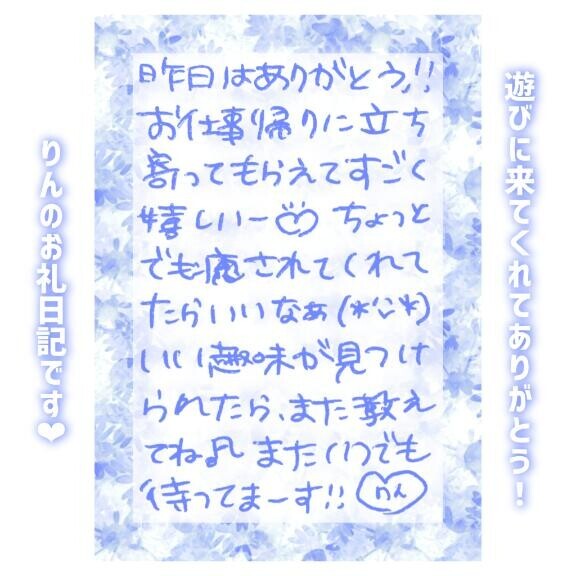 遊びに来てくれてありがとう！
昨日はありがとう!!
お仕事帰りに立ち
寄ってもらえてすごく
嬉しいー♡ ちょっと
でも癒されてくれて
たらいいなぁ(*'ᴗ'*)
いい趣味が見つけ
られたら、また教え
てね♪ またいつでも
待ってまーす!! りん
りんのお礼日記です❤